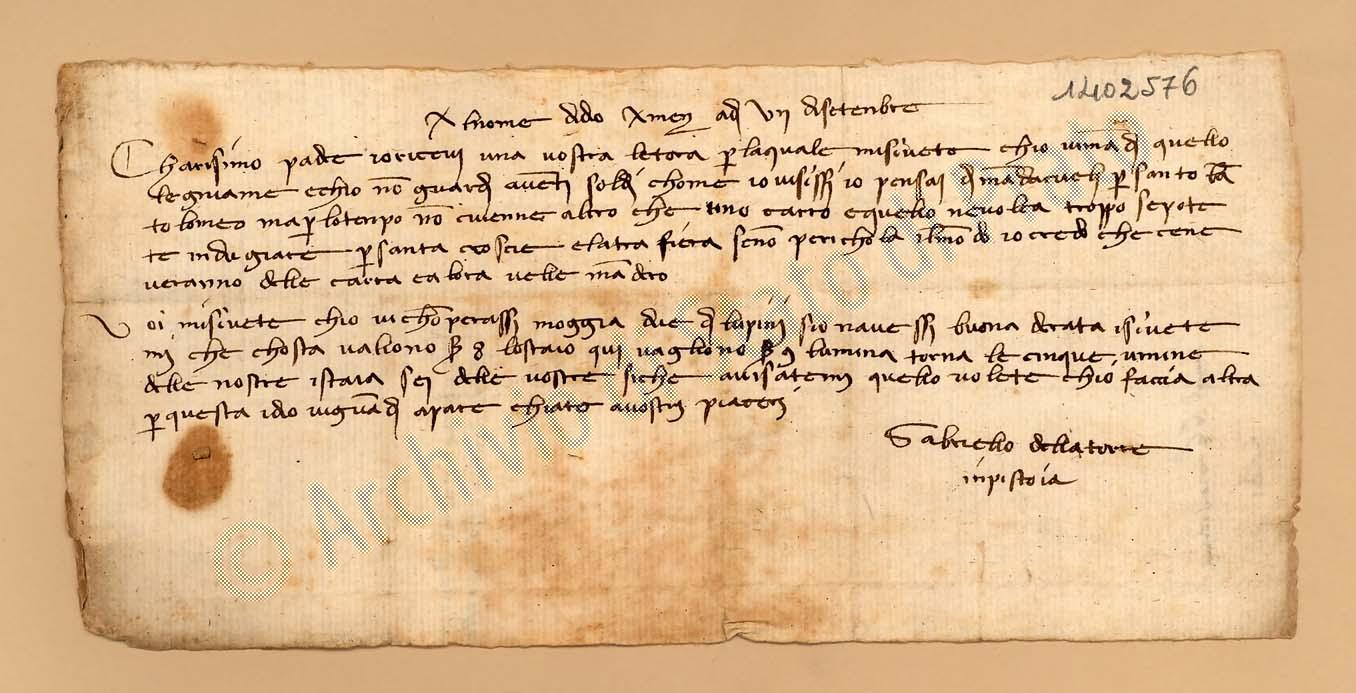 1402576
X lnome dido Xmeṅ adi VII disetenbre
Charisimo padre io ricevi una vostra letera p laquale misivete chio vima di quello
legniame echio nō guardi aventi soldi chome io visissi io pensai di mādarveli p santo bā
tolomeo ma p lotenpo nō civenne altro che uno carro e quello nevolea troppo sepote
te indugiare p santa croscie elatra fiera senō pericholā ilmōdo io credo che cene
veranno delle carra ea lora velle māderò
Voi misivete chio vichōperassi moggia due di lupini sio navessi buona derata isivete
mi che chosta valiono 8 lostaio qui vagliono 9 lumina torna le cinque umine
delle nostre istaia sei delle vostre siche avisatemi quello volete chio faccia altra
p questa idio viguardi apare chiato avostri piaceri
Gabriello dellatorre
inpistoia
© Archivio di Stato di